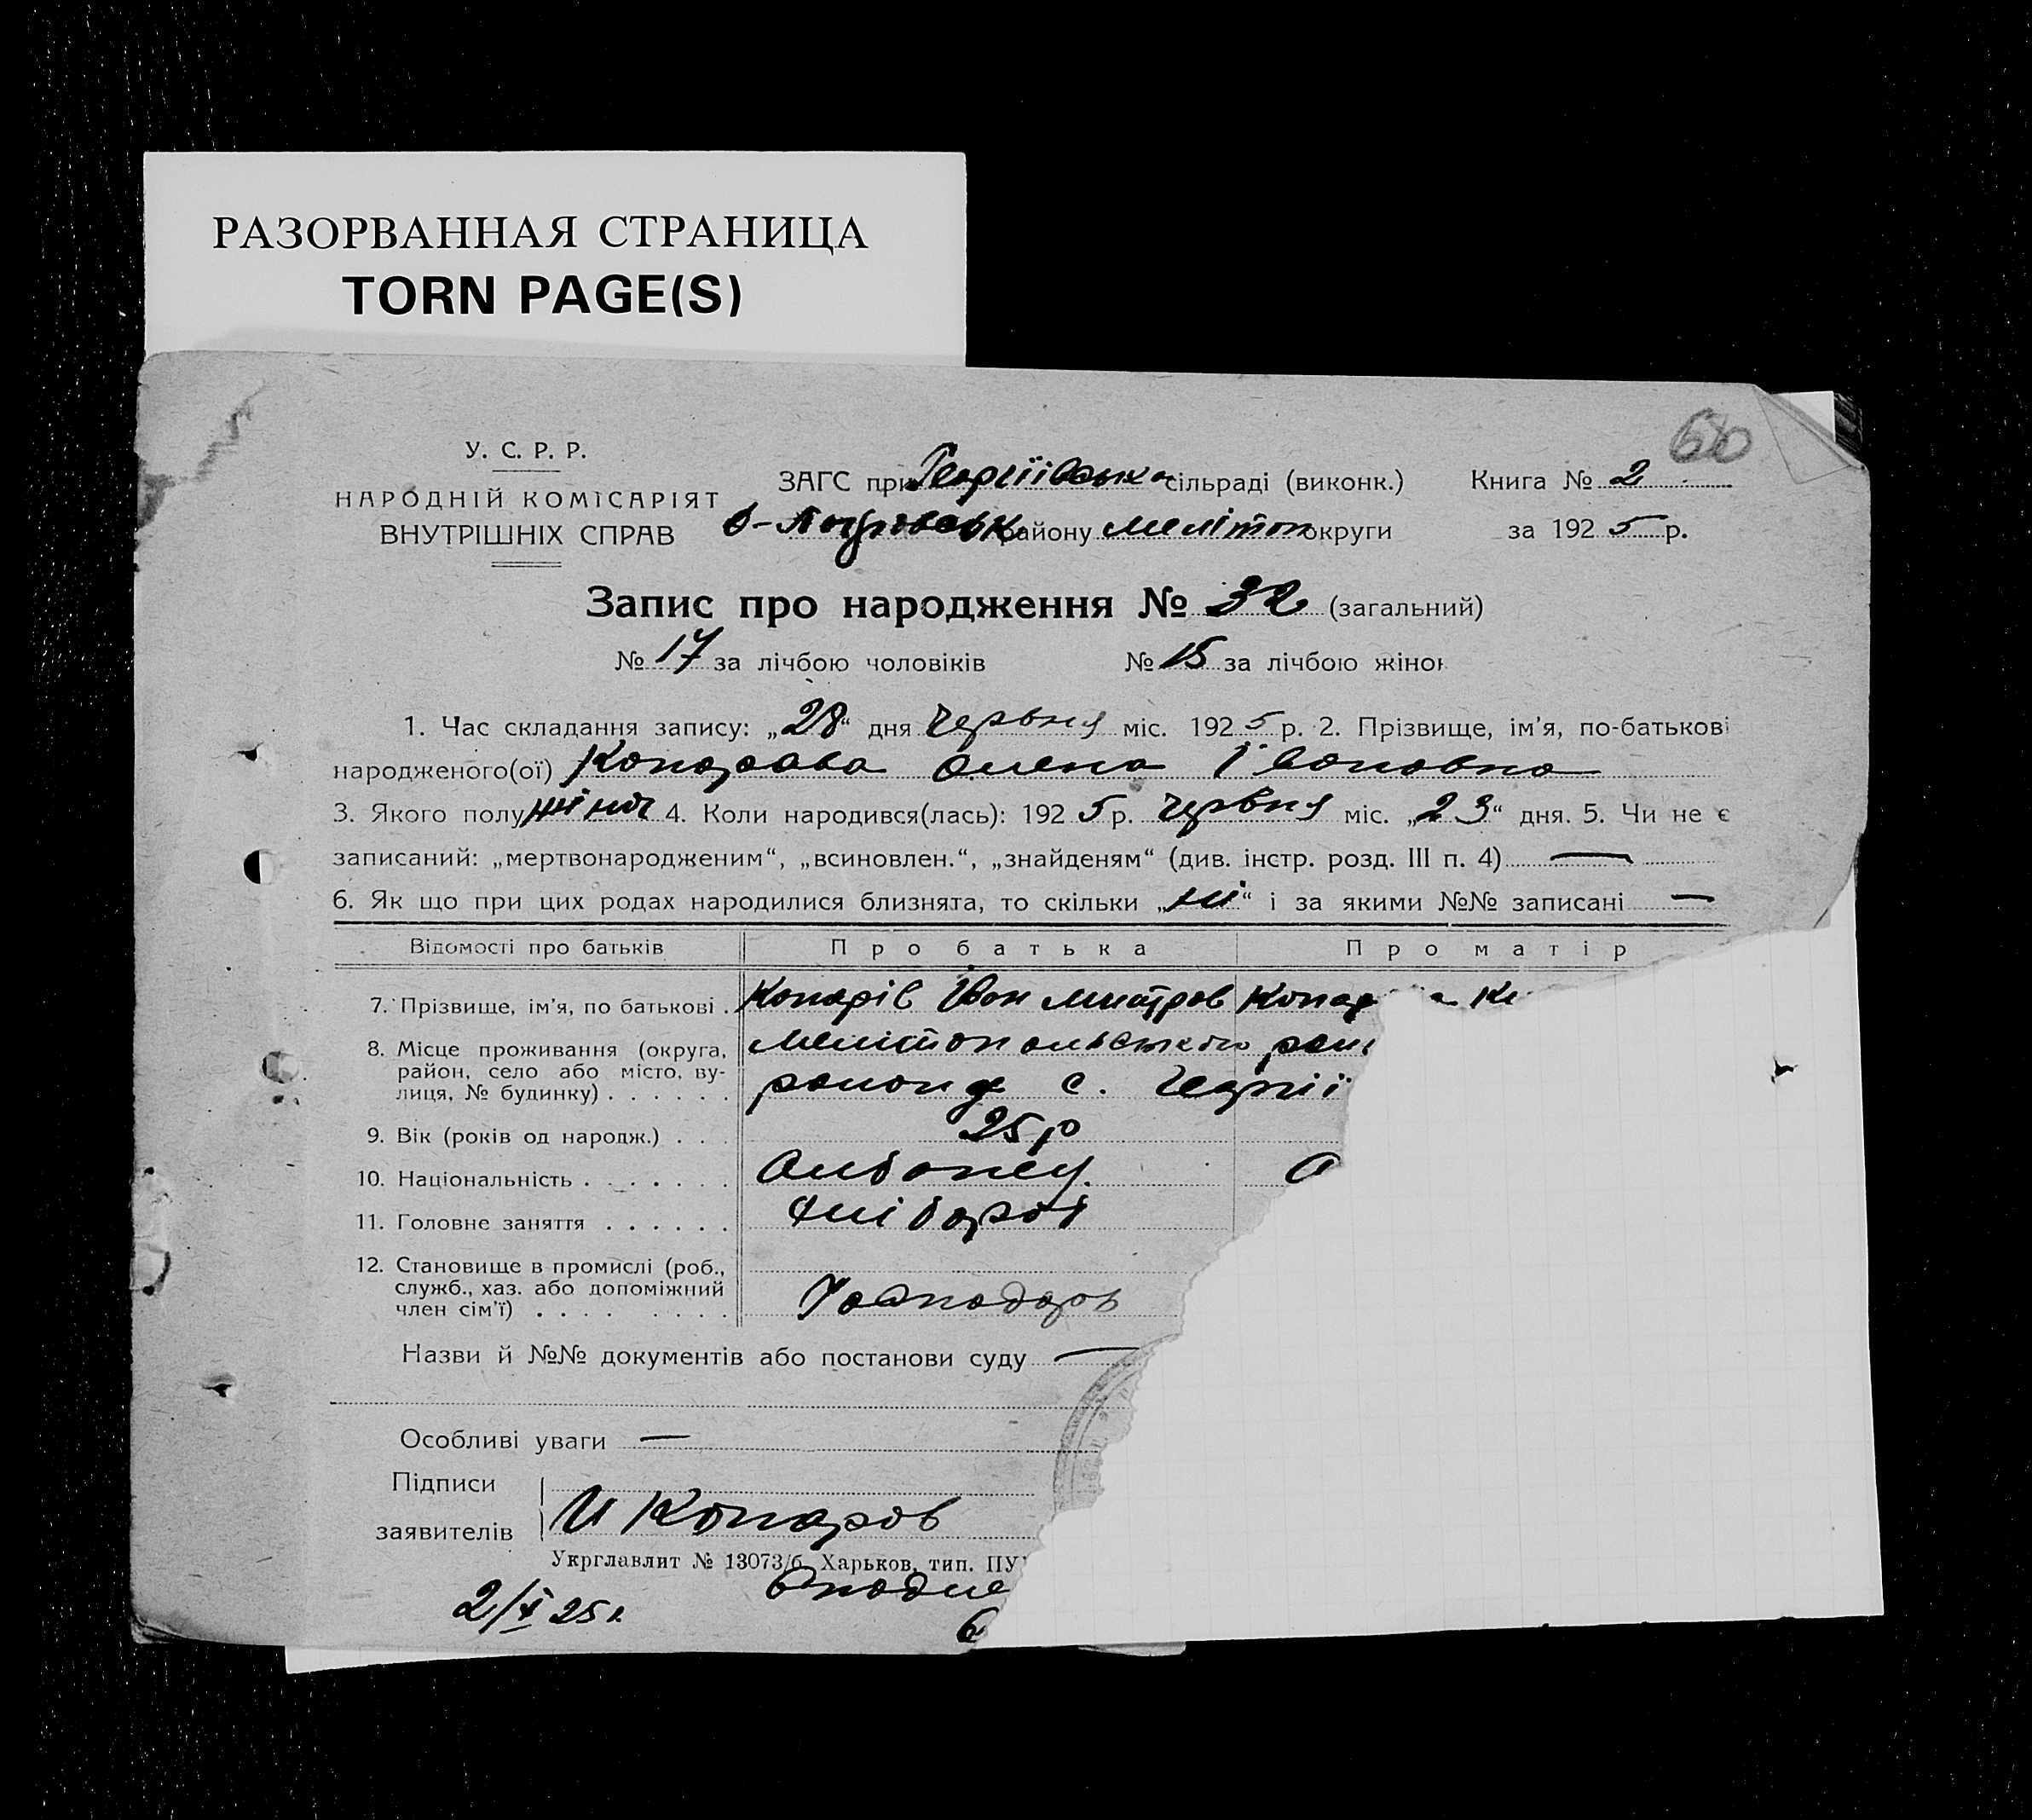 РАЗОРВАННАЯ СТРАНИЦА
TORN PAGE(S)
60
У. С. Р. Р.
НАРОДНІЙ КОМІСАРІЯТ
ВНУТРІШНІХ СПРАВ
ЗАГС при Георгіївська сільраді (виконк.)
району Мелітоп округи
Книга № 2
за 1925 р.
Запис про народження № 32 (загальний)
№ 17 за лічбою чоловіків № 15 за лічбою жінок
1. Час складання запису: „28“ дня Червня міс. 1925 р. 2. Прізвище, ім'я, по-батькові
народженого(ої) Копарова Олена Івановна
3. Якого полу жіноч 4. Коли народився(лась): 1925 р. Червня міс. „23“ дня. 5. Чи не є
записаний: „мертвонародженим“, „всиновлен.“, „знайденям“ (див. інстр. розд. III п. 4) —
6. Як що при цих родах народилися близнята, то скільки „ні“ і за якими №№ записані —
Відомості про батьків Про батька Про матір
7. Прізвище, ім'я, по батькові . Копарів Іван Митров
8. Місце проживання (округа, Мелітопольського
район, село або місто, ву- району с. Георгії
лиця, № будинку) . . . . . .
9. Вік (років од народж.) . . . 25 р
10. Національність . . . . . . . Албанец. А
11. Головне заняття . . . . . . Хлібороб
12. Становище в промислі (роб.,
служб., хаз. або допоміжний
член сім'ї) . . . . . . . . Господарь
Назви й №№ документів або постанови суду —
Особливі уваги —
Підписи
заявителів И Копаров
Укрглавлит № 13073/б. Харьков, тип. ПУ
2/X 25 г.